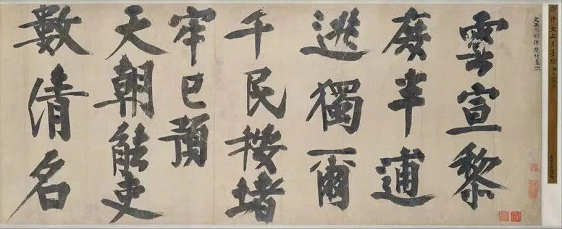 雲宣黎
廢半逋
逃獨爾
千民按堵
牢已預
天朝能吏
數清名